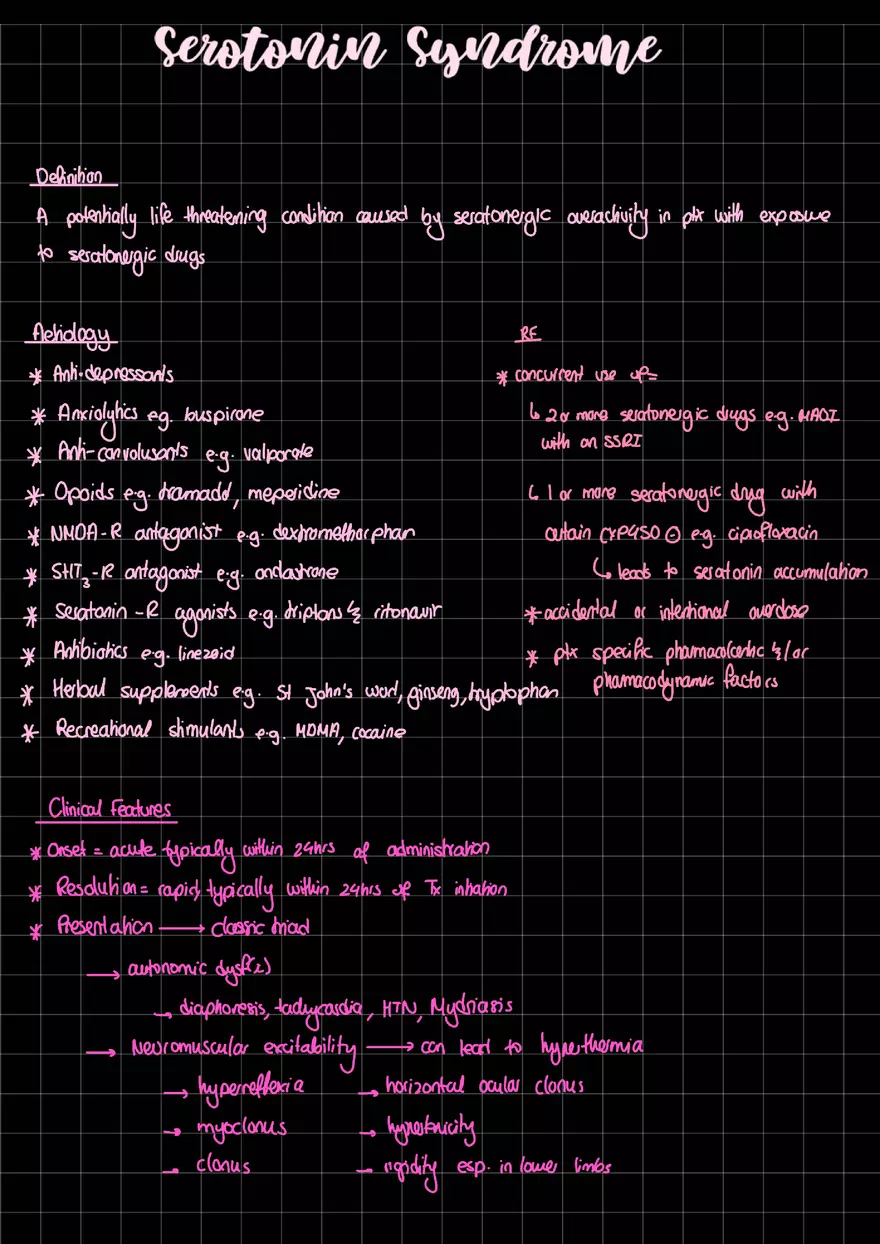 Serotonin Syndrome
Definition
A potentially life threatening condition caused by seratonergic overactivity in ptx with exposure
to seratonergic drugs
Aetiology
* Anti-depressants
* Anxiolytics eg. buspirone
* Anti-convolusants e.g. valporate
* Opoids e.g. tramadol, meperidine
* NMDA-R antagonist e.g. dextromethorphan
* 5HT3-R antagonist e.g. ondastrone
* Seratonin -R agonists e.g. triptans & ritonavir
* Antibiotics e.g. linezoid
* Herbal supplements e.g. St John's wort, ginseng, tryptophan
* Recreational stimulants e.g. MDMA, cocaine
RF
* concurrent use of=
↳ 2 or more seratonergic drugs e.g. MAOI
with an SSRI
↳ 1 or more seratonergic drug with
certain CYP450 ⊖ e.g. ciprofloxacin
↳ leads to seratonin accumulation
* accidental or intentional overdose
* ptx specific &/or
pharmacodynamic factors
Clinical Features
* Onset = acute typically within 24hrs of administration
* Resolution = rapid, typically within 24hrs of Tx
* Presentation → classic triad
→ autonomic
→ diaphoresis, tachycardia, HTN, Mydriasis
→ Neuromuscular excitability → can lead to hyperthermia
→ hyperreflexia → horizontal ocular clonus
→ myoclonus → hypertonicity
→ clonus → rigidity esp. in lower limbs